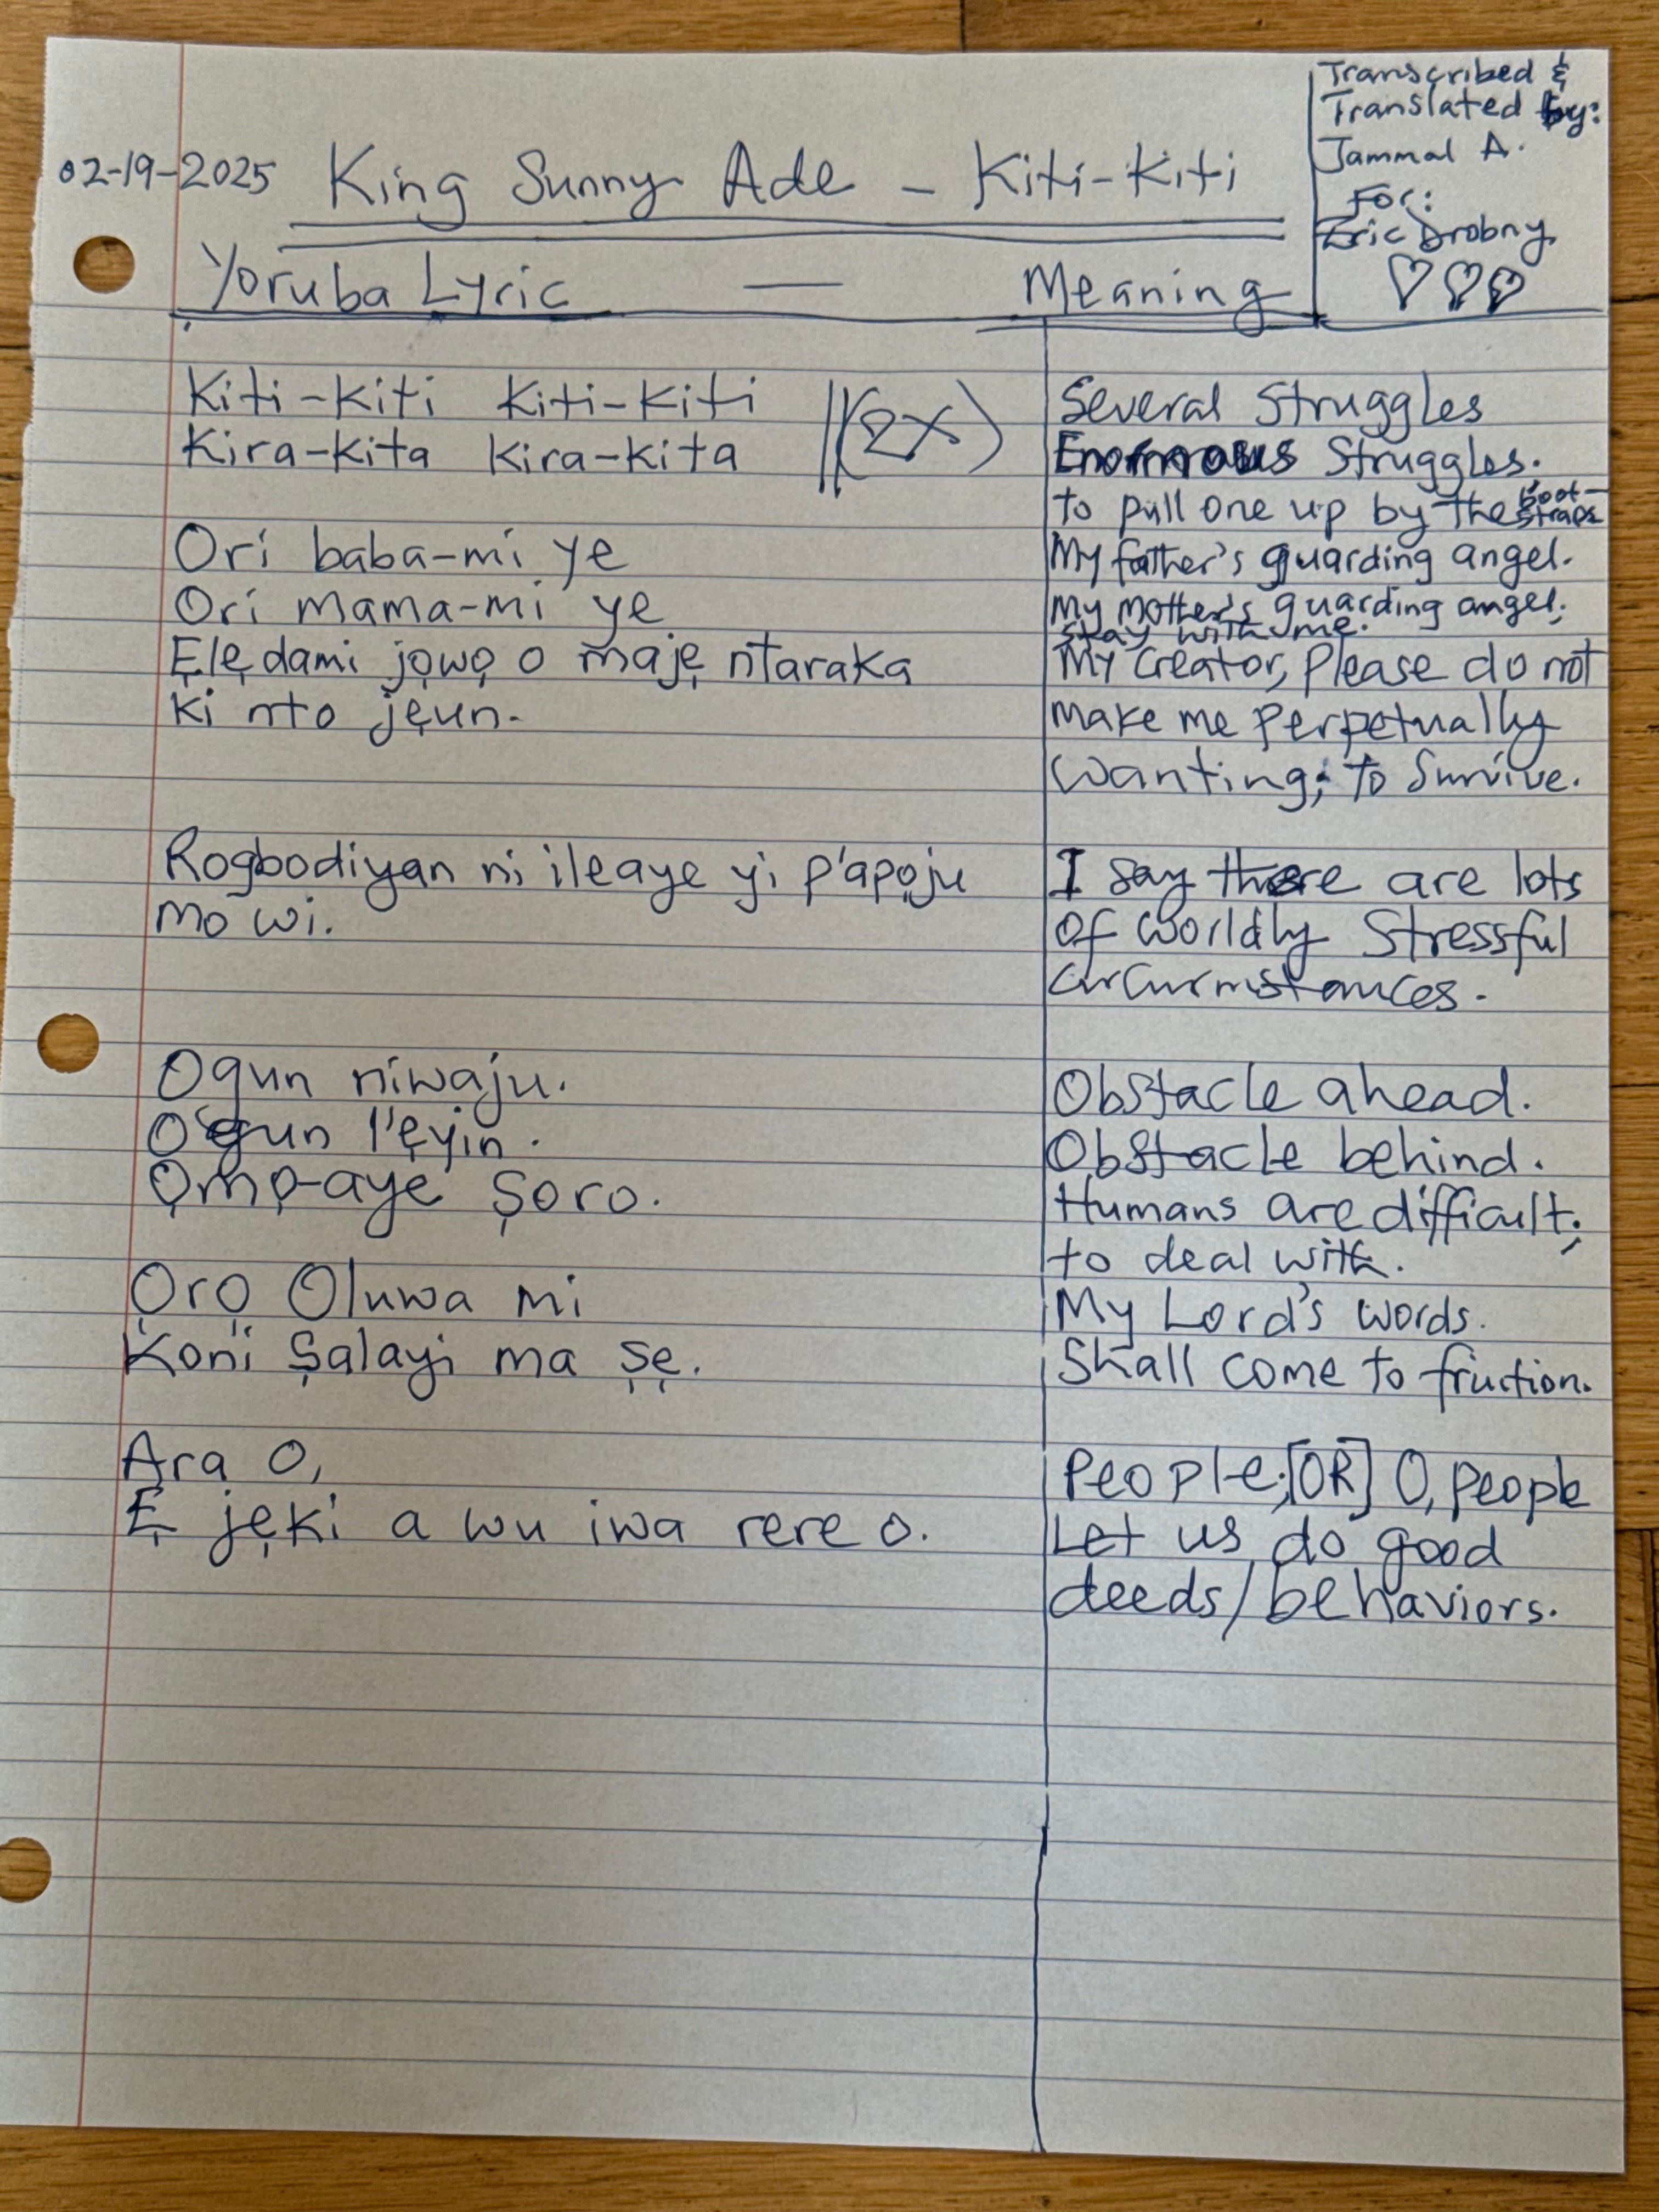 Transcribed &
Translated by:
Jammal A.
For:
Eric Drobny
02-19-2025 King Sunny Ade - Kiti-Kiti
Yoruba Lyric — Meaning
Kiti-kiti Kiti-kiti
Kira-kita Kira-kita
(2X)
Several Struggles
Enormous Struggles.
to pull one up by the boot-straps
Ori baba-mi ye
Ori mama-mi ye
Ẹlẹdami jọwọ o majẹ ntaraka
ki nto jẹun.
My father's guarding angel.
My mother's guarding angel;
stay with me.
My Creator, please do not
make me perpetually
wanting; to survive.
Rogbodiyan ni ileaye yi p'apọju
mo wi.
I say there are lots
of worldly stressful
circumstances.
Ogun niwaju.
Ogun l'ẹyin.
Ọmọ-aye ṣoro.
Obstacle ahead.
Obstacle behind.
Humans are difficult;
to deal with.
Ọrọ Oluwa mi
Koni Ṣalayi ma ṣẹ.
My Lord's words.
Shall come to fruition.
Ara O,
Ẹ jẹki a wu iwa rere o.
People;[OR] O, people
Let us do good
deeds/behaviors.